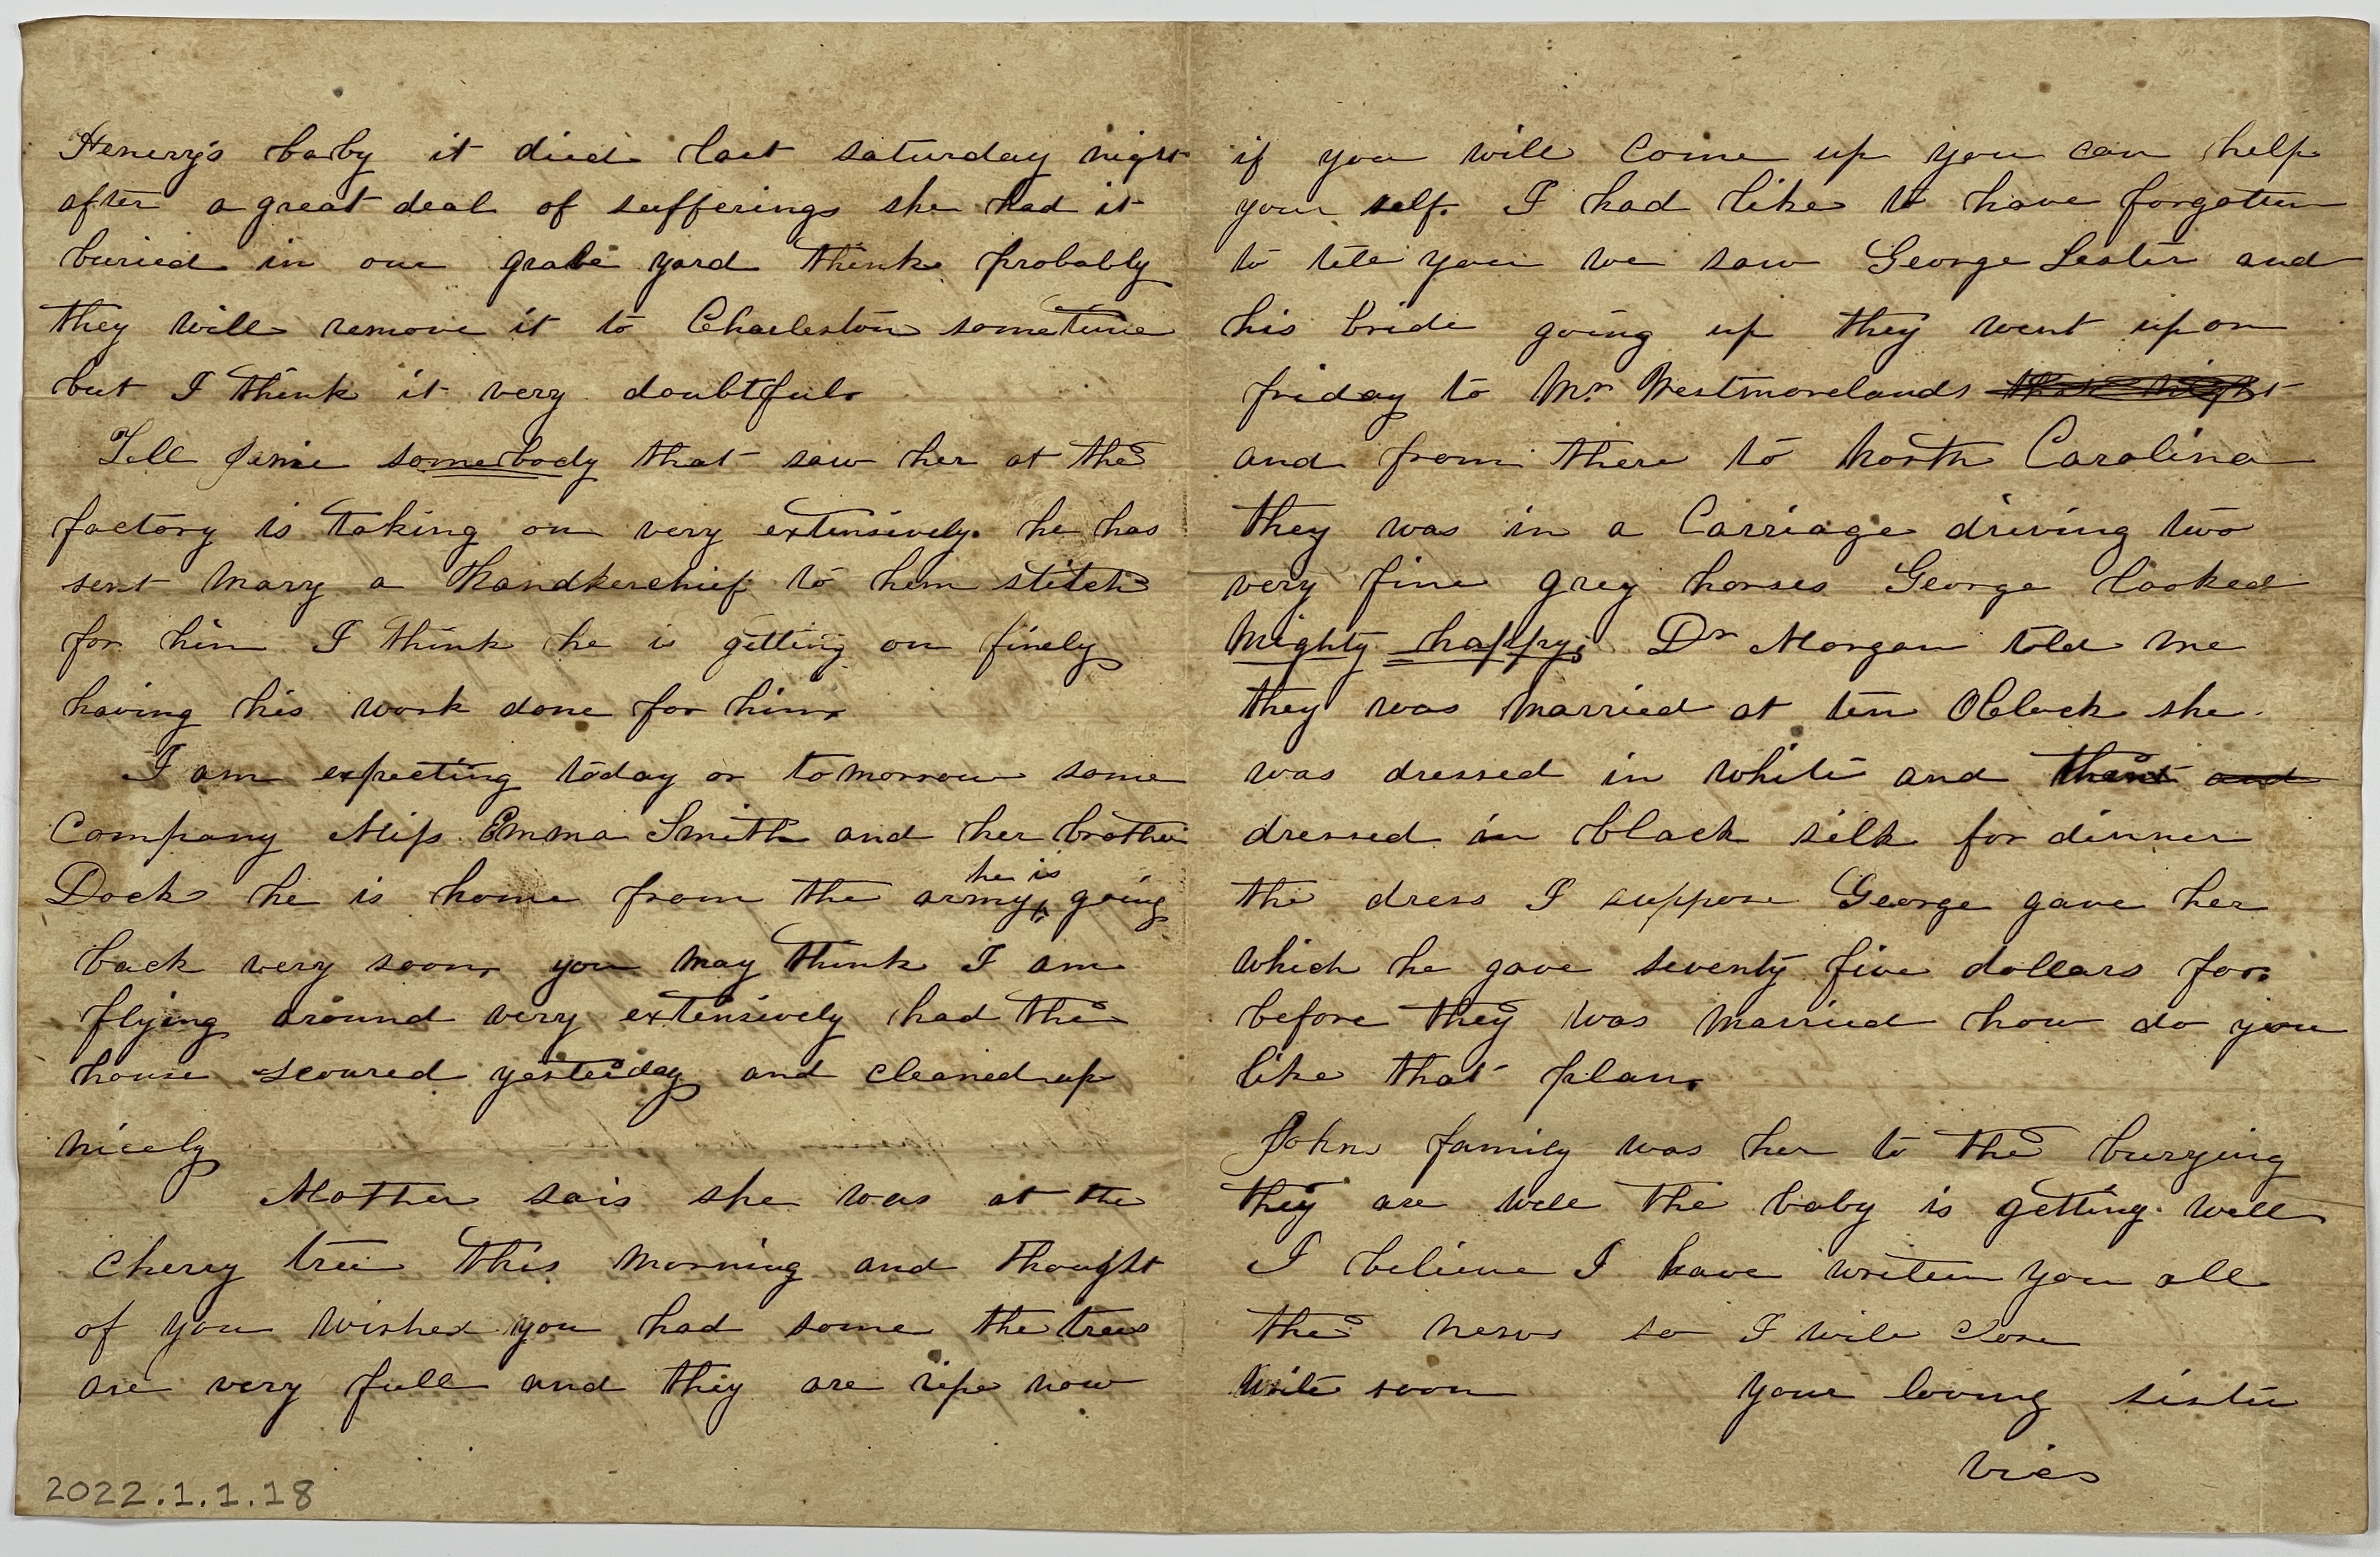 Henerry's baby it died last saturday night
after a great deal of sufferings she had it
buried in our grave yard think probably
they will remove it to Charleston sometime
but I think it very doubtful.
Tell Jimie somebody that saw her at the
factory is taking on very extensively. he has
sent Mary a Handkerchief to hem stitch
for him I think he is getting on finely
having his work done for him.
I am expecting today or tomorrow some
Company Miss Emma Smith and her brother
Dock he is home from the army, he is going
back very soon, you may think I am
flying around very extensively had the
house scoured yesterday and cleaned up
nicely
Mother sais she was at the
cherry tree this morning and thought
of you wished you had some the trees
are very full and they are ripe now
2022.1.1.18
if you will come up you can help
your self. I had like to have forgotten
to tell you we saw George Lester and
his bride going up they went up on
friday to Mr. Westmorelands that night
and from there to North Carolina
they was in a Carriage driving two
very fine grey horses George looked
Mighty happy; Dr Morgan told me
they was Married at ten OClock she
was dressed in white and and
dressed in black silk for dinner
the dress I suppose George gave her
which he gave seventy five dollars for.
before they was Married how do you
like that plan.
Johns family was her to the burying
they are well the baby is getting well
I believe I have writen you all
the news so I will close
Write soon your loving sister